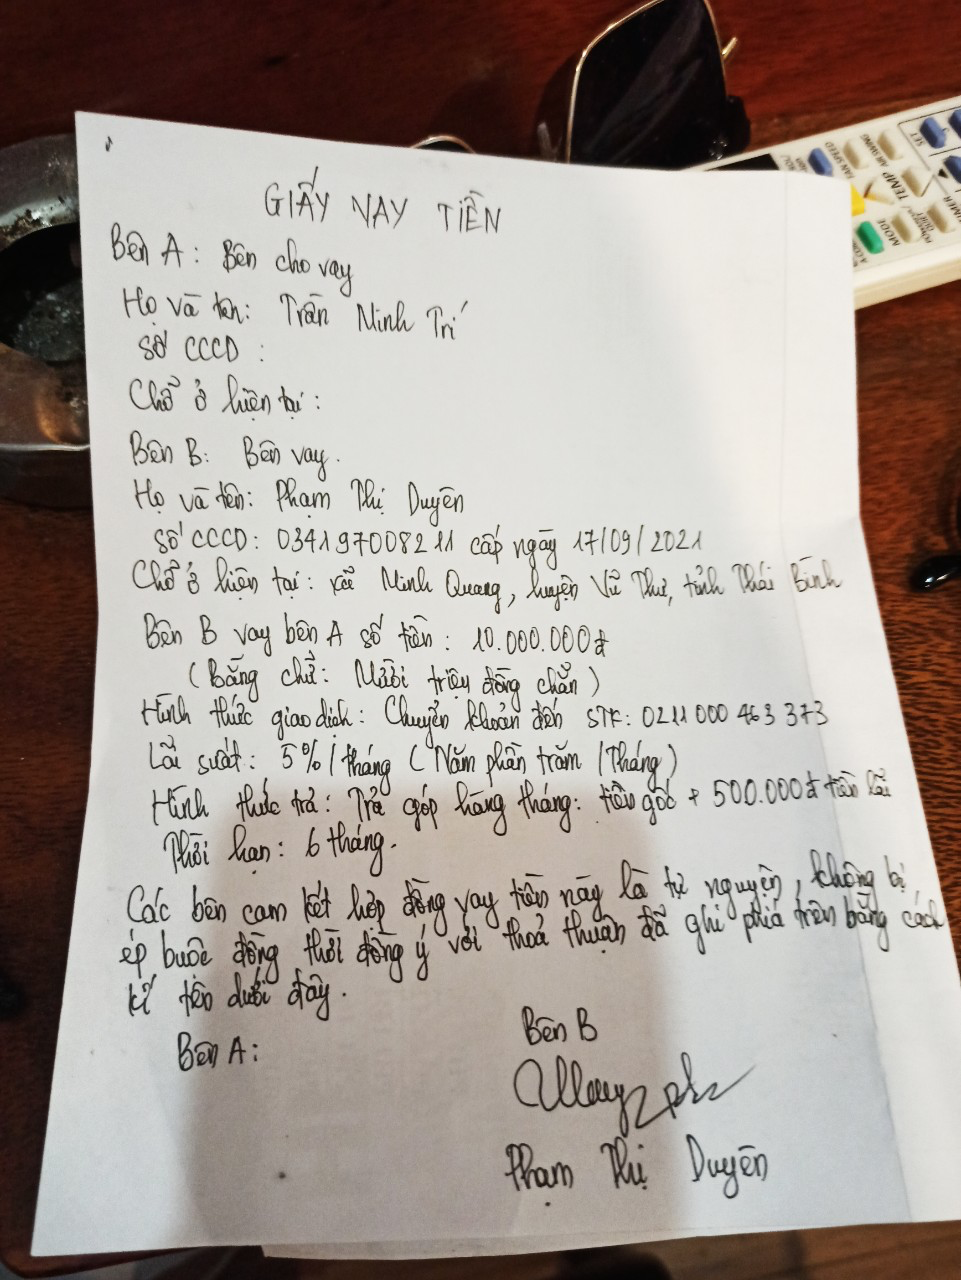 GIẤY VAY TIỀN
Bên A: Bên cho vay
Họ và tên: Trần Minh Trí
Số CCCD :
Chổ ở hiện tại :
Bên B: Bên vay.
Họ và tên: Phạm Thị Duyên
Số CCCD: 034197008211 cấp ngày 17/09/2021
Chổ ở hiện tại : xã Minh Quang, huyện Vũ Thư, tỉnh Thái Bình
Bên B vay bên A số tiền : 10.000.000đ
(Bằng chữ: Mười triệu đồng chẵn)
Hình thức giao dịch : Chuyển khoản đến STK: 0211 000 463 373
Lãi suất : 5%/tháng (Năm phần trăm /Tháng)
Hình thức trả : Trả góp hàng tháng: tiền gốc + 500.000đ tiền lãi
Thời hạn : 6 tháng.
Các bên cam kết hợp đồng vay tiền này là tự nguyện, không bị
ép buộc đồng thời đồng ý với thoả thuận đã ghi phía trên bằng cách
kí tên dưới đây.
Bên A:
Bên B
Phạm Thị Duyên
SET
AIR SWING
FAN SPEED
TEMP
MODE